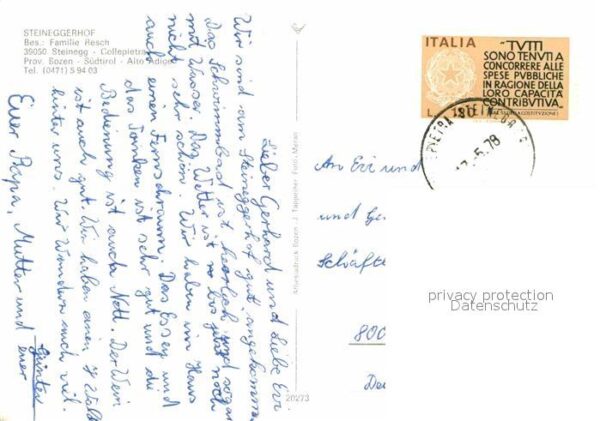 STEINEGGERHOF
Bes.: Familie Resch
39050 Steinegg - Collepietra
Prov. Bozen - Südtirol - Alto Adige
Tel. (0471) 5 94 03
Lieber Gerhard und Liebe Evi
Wir sind am Steineggerhof gut angekommen
Das Schwimmbad ist herrlich und sogar
mit Wasser. Das Wetter ist so bis jetzt noch
nicht sehr schön. Wir haben im Haus
auch einen Fernsehraum. Das Essen und
das Trinken ist sehr gut und die
Bedienung ist auch Nett. Der Wein
ist auch gut. Wir haben einen Wald
hinter uns. Wir Wandern auch viel.
Euer Papa, Mutter und
euer Günter
20273
ITALIA
"TUTTI
SONO TENUTI A
CONCORRERE ALLE
SPESE PUBBLICHE
IN RAGIONE DELLA
LORO CAPACITÀ
CONTRIBUTIVA."
5.78
An Evi und
und Ge
Schäfte
800
privacy protection
Datenschutz